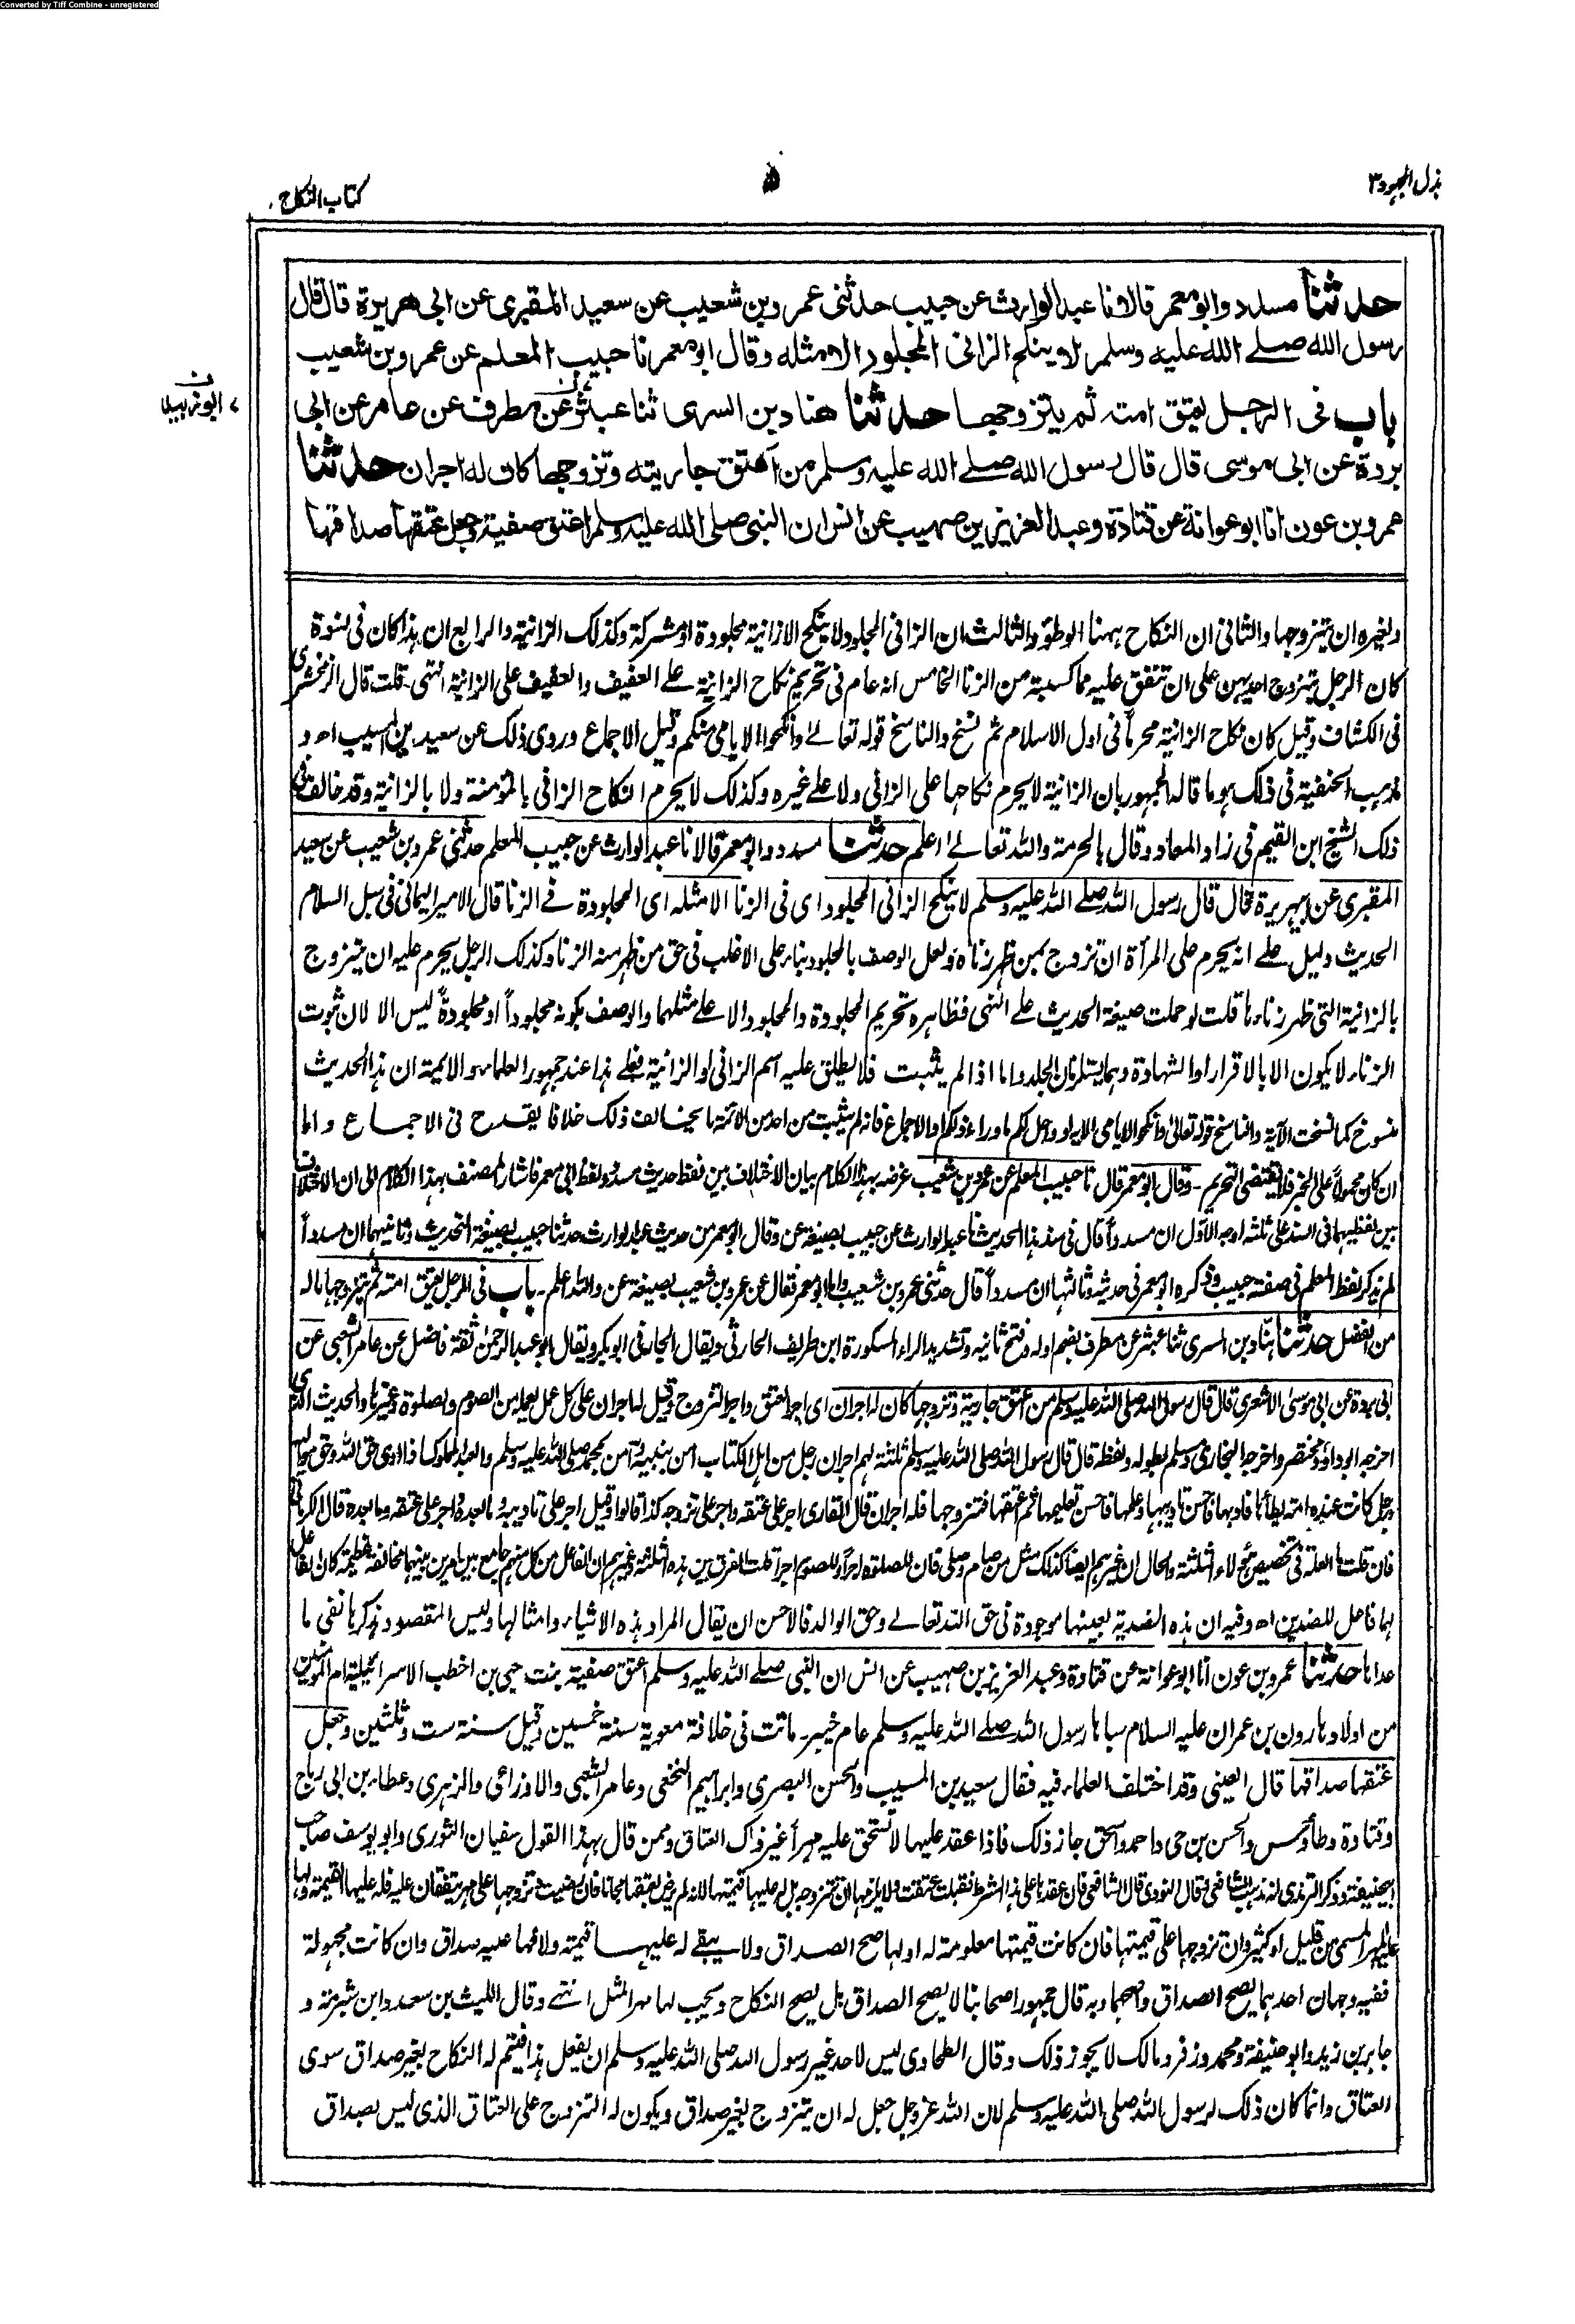 Converted by Tiff Combine - unregistered
بذل المجهود ٣
كتاب النكاح
حدثنا مسدد وابو معمر قالا نا عبد الوارث عن حبيب حدثنى عمرو بن شعيب عن سعيد المقبرى عن ابى هريرة قال قال
رسول الله صلے الله عليه وسلم لا ينكح الزانى المجلود الا مثله وقال ابو معمر نا حبيب المعلم عن عمرو بن شعيب
باب فى الرجل يعتق امته ثم يتزوجها حدثنا هناد بن السرى ثنا عبثر عن مطرف عن عامر عن ابى
بردة عن ابى موسى قال قال رسول الله صلے الله عليه وسلم من اعتق جاريته وتزوجها كان له اجران حدثنا
عمرو بن عون انا ابو عوانة عن قتادة وعبد العزيز بن صهيب عن انس ان النبى صلى الله عليه وسلم اعتق صفية وجعل عتقها صداقها
ولغيره ان يتزوجها والثانى ان النكاح ههنا الوطؤ والثالث ان الزانى المجلود لا ينكح الا زانية مجلودة او مشركة وكذلك الزانية والرابع ان هذا كان فى نسوة
كان الرجل يتزوج احديهن على ان تنفق عليه مما كسبته من الزنا الخامس انه عام فى تحريم نكاح الزانية علے العفيف والعفيف على الزانية انتهى - قلت قال الزمخشرى
فى الكشاف وقيل كان نكاح الزانية محرماً فى اول الاسلام ثم نسخ والناسخ قوله تعالے وانكحوا الايامى منكم وقيل الاجماع وروى ذلك عن سعيد بن المسيب اه و
مذهب الحنفية فى ذلك هو ما قاله الجمهور بان الزانية لا يحرم نكاحها على الزانى ولا علے غيره وكذلك لا يحرم النكاح الزانى بالمؤمنة ولا بالزانية وقد خالف فى
ذلك الشيخ ابن القيم فى زاد المعاد وقال بالحرمة والله تعالے اعلم حدثنا مسدد وابو معمر قالا نا عبد الوارث عن حبيب المعلم حدثنى عمرو بن شعيب عن سعيد
المقبرى عن ابى هريرة قال قال رسول الله صلے الله عليه وسلم لا ينكح الزانى المجلود اى فى الزنا الا مثله اى المجلودة فے الزنا قال الامير اليمانى فى سبل السلام
الحديث دليل علے انه يحرم على المرأة ان تزوج بمن ظهر زناه ولعل الوصف بالمجلود بناء على الاغلب فى حق من ظهر منه الزنا وكذلك الرجل يحرم عليه ان يتزوج
بالزانية التى ظهر زناءها قلت لو حملت صيغة الحديث علے النهى فظاهره تحريم المجلودة والمجلود الا علے مثلهما والوصف بكونه مجلوداً او مجلودةً ليس الا لان ثبوت
الزناء لا يكون الا بالاقرار او الشهادة وهما يستلزمان الجلد واما اذا لم يثبت فلا يطلق عليه اسم الزانى او الزانية فعلے هذا عند جمهور العلماء والايمة ان هذا الحديث
منسوخ كما نسخت الآية والناسخ قوله تعالى وانكحوا الايامى الاية او واحل لكم ما وراء ذلكم او الاجماع فانه لم يثبت من احد من الائمة ما يخالف ذلك خلافا يقدح فى الاجماع واما
ان كان محمولاً على الخبر فلا يقتضى التحريم - وقال ابو معمر قال نا حبيب المعلم عن عمرو بن شعيب غرضه بهذا الكلام بيان الاختلاف بين لفظ حديث مسدد ولفظ ابى معمر فاشار المصنف بهذا الكلام الى ان الاختلاف
بين لفظيهما فى السند على ثلثة اوجه الاول ان مسدداً قال فى سند هذا الحديث نا عبد الوارث عن حبيب بصيغة عن وقال ابو معمر من حديث عبد الوارث حدثنا حبيب بصيغة التحديث وثانيهما ان مسدداً
لم يذكر لفظ المعلم فى صفة حبيب وذكره ابو معمر فى حديثه وثالثها ان مسدداً قال حدثنى عمرو بن شعيب واما ابو معمر فقال عن عمرو بن شعيب بصيغة عن والله اعلم - باب فى الرجل يعتق امته ثم يتزوجها ما له
من الفضل حدثنا هناد بن السرى ثنا عبثر عن مطرف بضم اوله وفتح ثانيه وتشديد الراء المكسورة ابن طريف الحارثى ويقال الجارفى ابو بكر ويقال ابو عبد الرحمن ثقة فاضل عن عامر الشعبى عن
ابى بردة عن ابى موسى الاشعرى قال قال رسول الله صلى الله عليه وسلم من اعتق جاريته وتزوجها كان له اجران اى اجر العتق واجر التزوج وقيل له اجران على كل عمل يعمله من الصوم والصلوة وغيرها والحديث الذى
اخرجه ابو داؤد مختصر واخرجه البخارى ومسلم بطوله ولفظه قال قال رسول الله صلى الله عليه وسلم ثلثة لهم اجران رجل من اهل الكتاب آمن بنبيه وآمن بمحمد صلى الله عليه وسلم والعبد المملوك اذا ادى حق الله وحق مواليه
ورجل كانت عنده امة يطأها فادبها فاحسن تاديبها وعلمها فاحسن تعليمها ثم اعتقها فتزوجها فله اجران قال القارى اجر على عتقه واجر على تزوجه كذا قالوا وقيل اجر على تاديبه وما بعده واجر على عتقه وما بعده قال الكرمانى
فان قلت ما العلة فى تخصيص هؤلاء الثلثة والحال ان غيرهم ايضا كذلك مثل من صام وصلى فان للصلوة اجراً وللصوم اجراً قلت الفرق بين هذه الثلثة وغيرهم ان الفاعل من كل منهم جامع بين امرين بينهما مخالفة عظيمة كان الفاعل
لهما فاعل للضدين اه وفيه ان هذه الضدية بعينها موجودة فى حق الله تعالے وحق الوالد فالاحسن ان يقال المراد هذه الاشياء وامثالها وليس المقصود بذكرها نفى ما
عداها حدثنا عمرو بن عون انا ابو عوانة عن قتادة وعبد العزيز بن صهيب عن انس ان النبى صلے الله عليه وسلم اعتق صفية بنت حيى بن اخطب الاسرائيلية ام المؤمنين
من اولاد هارون بن عمران عليه السلام سباها رسول الله صلے الله عليه وسلم عام خيبر - ماتت فى خلافة معوية سنة خمسين وقيل سنة ست وثلثين وجعل
عتقها صداقها قال العينى وقد اختلف العلماء فيه فقال سعيد بن المسيب والحسن البصرى وابراهيم النخعى وعامر الشعبى والاوزاعى والزهرى وعطاء بن ابى رباح
وقتادة وطاؤس والحسن بن حى واحمد واسحق جاز ذلك فاذا عقد عليها لا تستحق عليه مهراً غير ذاك العتاق وممن قال بهذا القول سفيان الثورى وابو يوسف صاحب
ابى حنيفة وذكر الترمذى انه مذهب الشافعى قال النووى قال الشافعى فان عقدها على هذا الشرط فقبلت عتقت ولا يلزمها ان تتزوجه بل له عليها قيمتها لانه لم يرض بعتقها مجانا فان رضيت وتزوجها على مهر يتفقان عليه فله عليها القيمة ولها
عليه المهر المسمى من قليل او كثير وان تزوجها على قيمتها فان كانت قيمتها معلومة له او لها صح الصداق ولا يبقے له عليها قيمة ولا لها عليه صداق وان كانت مجهولة
ففيه وجهان احدهما يصح الصداق واصحهما وبه قال جمهور اصحابنا لا يصح الصداق بل يصح النكاح ويجب لها مهر المثل انتهے وقال الليث بن سعد وابن شبرمة و
جابر بن زيد وابو حنيفة ومحمد وزفر ومالك لا يجوز ذلك وقال الطحاوى ليس لاحد غير رسول الله صلى الله عليه وسلم ان يفعل هذا فيتم له النكاح بغير صداق سوى
العتاق وانما كان ذلك لرسول الله صلى الله عليه وسلم لان الله عز وجل جعل له ان يتزوج بغير صداق ويكون له التزوج على العتاق الذى ليس بصداق